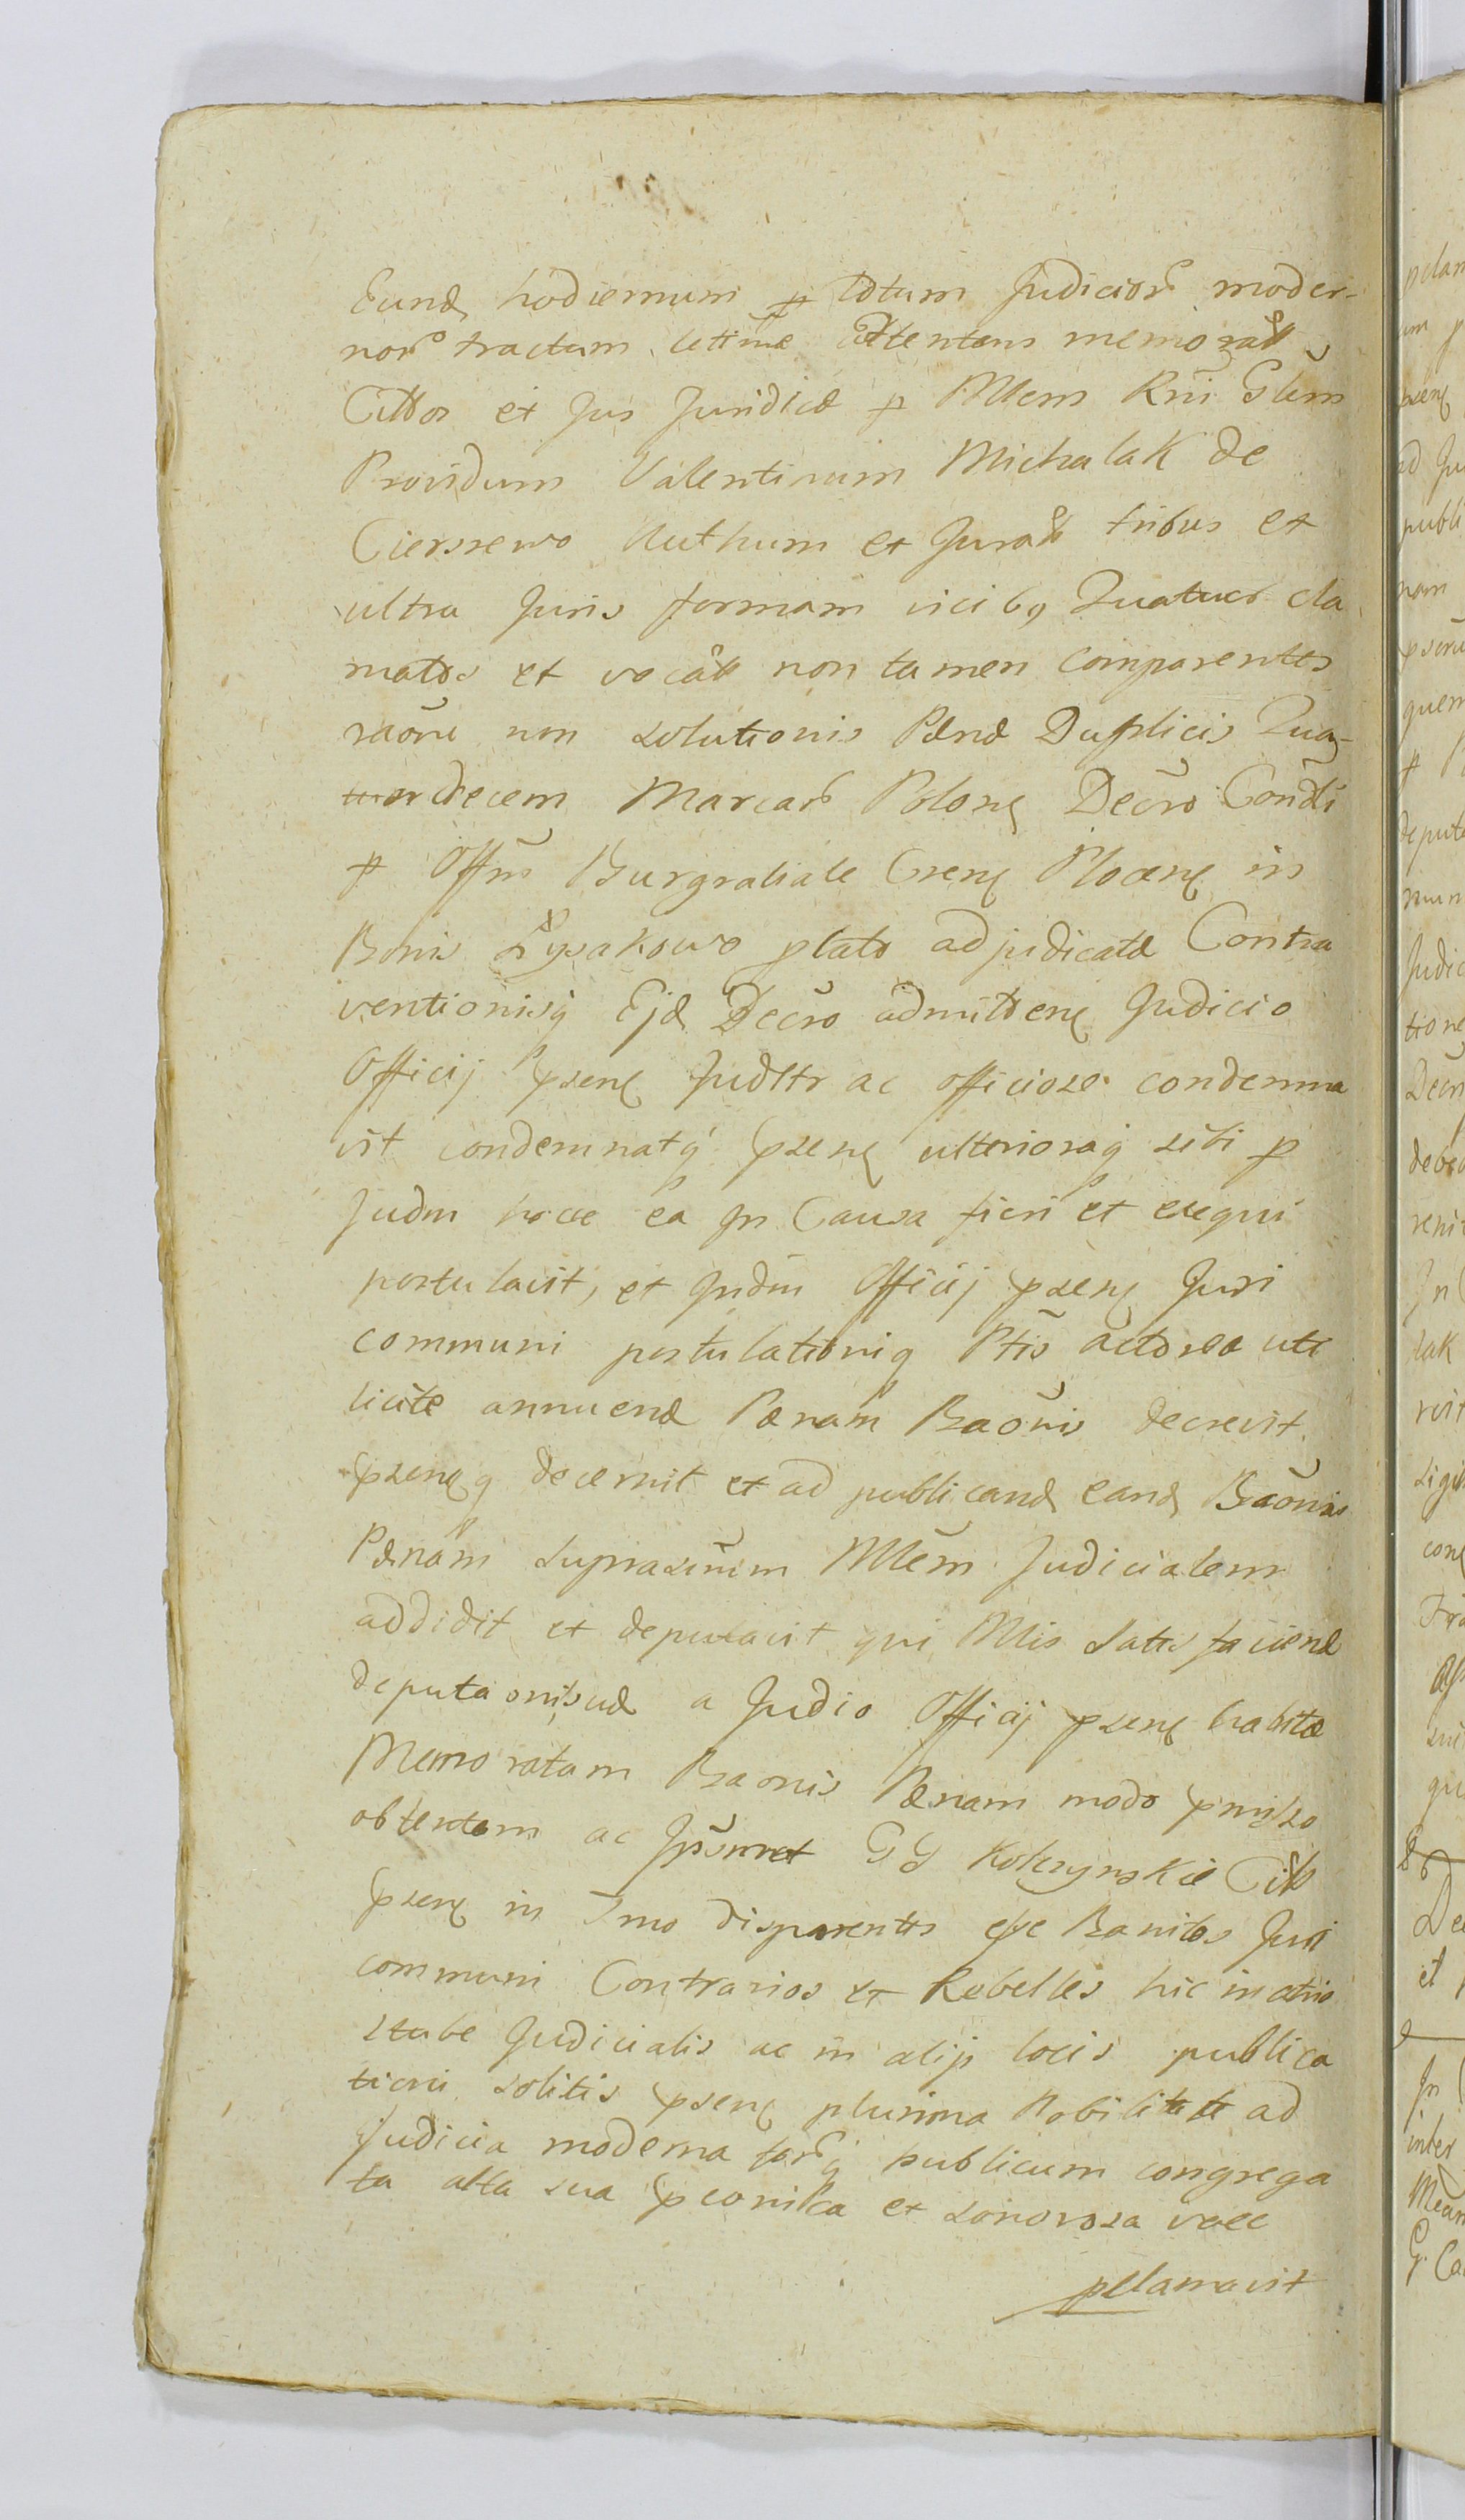 Eund hodiernum p totum Judicior moder-
nor tractum letime attentans memoratt
Cittos et Jus Juridice p Mlem Rni Glem
Providum Valentinum Michalak de
Cierszewo Authum et Juratt tribus et
ultra Juris formam vicibq Quatuor cla
matos et vocatt non tamen comparentes
raone non solutionis Pænæ Duplicis Qua-
tuordecem Marcar Polong Decro Condi
p Offm Burgrabiale Csreng Ploceng in
Bonis Łysakowo plato adjudicatæ Contra
ventionisq Ejd Decro admittend Judicio
Officij pseng Judltr ac officiose condemna
vit condemnatq pseng ulterioraq sibi p
Judm hocce ea In Causa fieri et exequi
postulavit, et Judm Officij pseng Juri
communi postulationiq Ptis actorea uti
licite annuend Pænam Baonis decrevit
psengq decernit et ad publicand eand Baonis
Pænam suprascrim Mlem Judicialem
addidit et deputavit qui Mlis satisfaciend
deputaonisud a Judio Officij pseng habitæ
Memoratam Baonis Pænam modo pmisso
obtentam ac Jpsmet GG Kolczynskie Citt
pseng in Imo disparentes esse Banitos Juri
communi Contrarios et Rebelles hic in atrio
stubæ Judicialis ac in alijs locis publica
tioni solitis pseng plurima Nobilitate ad
Judicia moderna forq publicum congrega
ta alta sua pconica et sonorosa voce
pclamavit